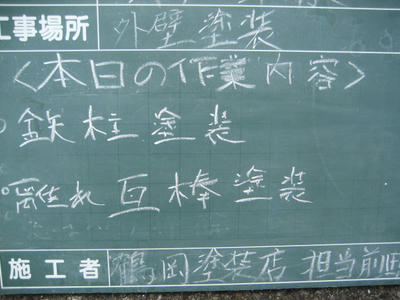 工事場所 外壁塗装
<本日の作業内容>
○鉄柱塗装
○離れ瓦棒塗装
施工者 鶴岡塗装店 担当前田